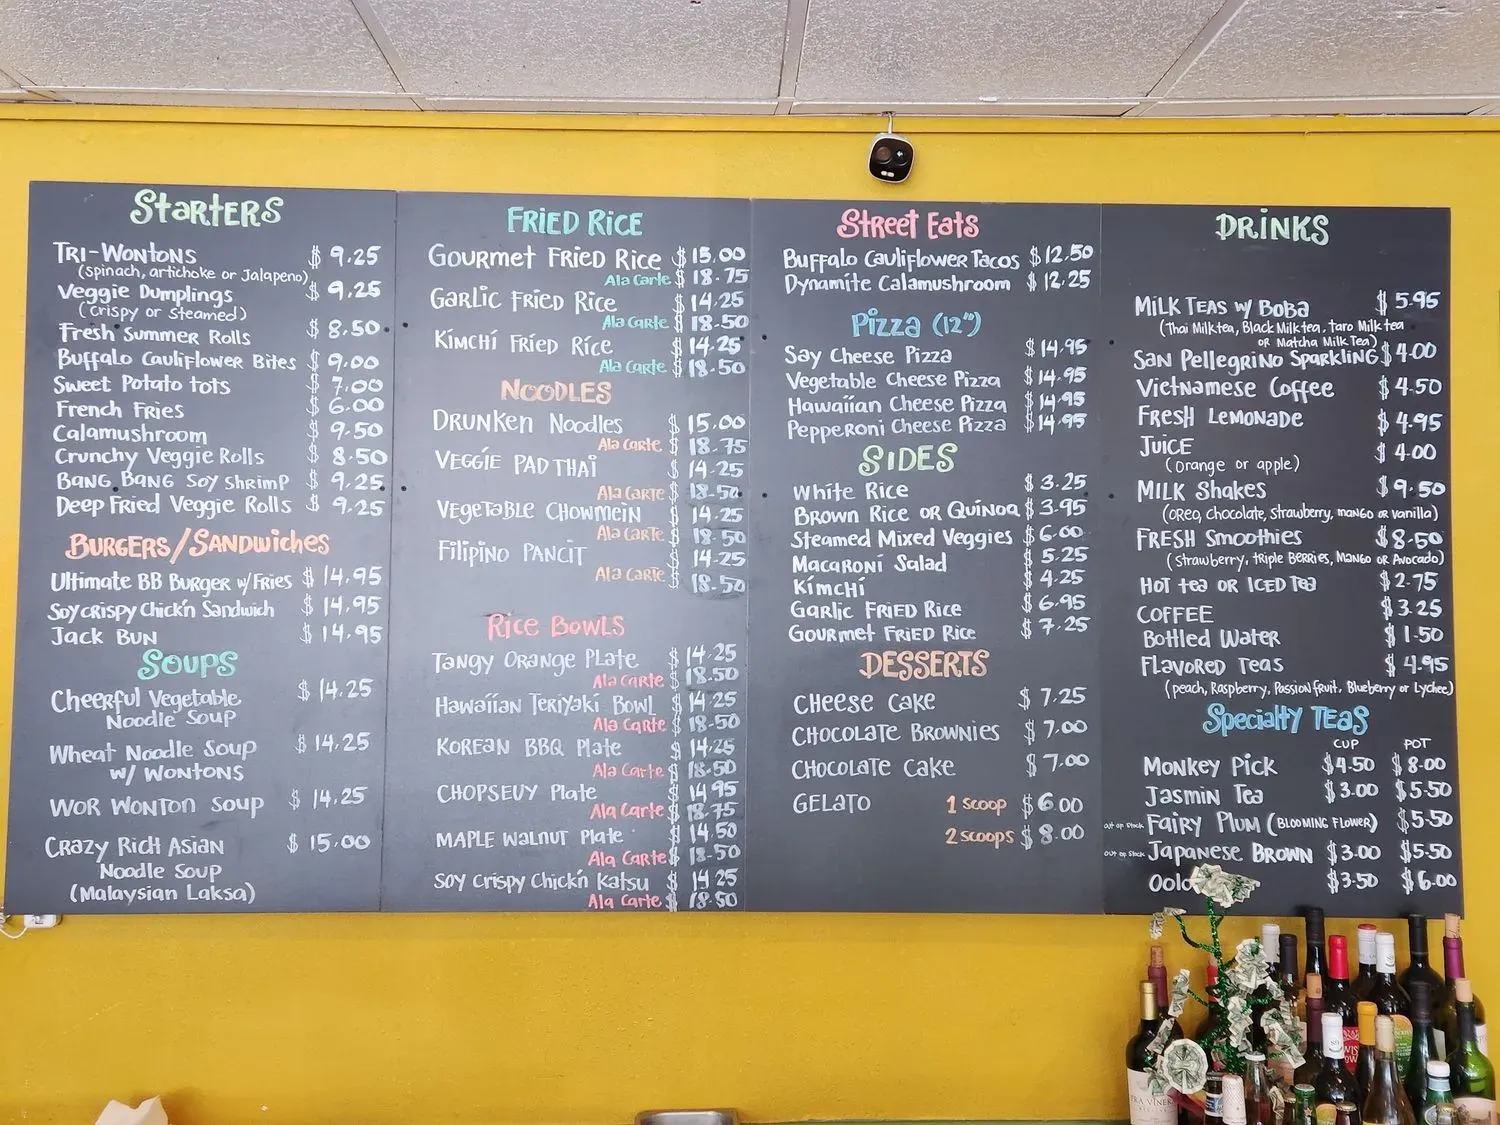 Starters
Tri-Wontons $ 9.25
(spinach, artichoke or Jalapeno)
Veggie Dumplings $ 9.25
(crispy or steamed)
Fresh Summer Rolls $ 8.50
Buffalo Cauliflower Bites $ 9.00
Sweet Potato tots $ 7.00
French Fries $ 6.00
Calamushroom $ 9.50
Crunchy Veggie Rolls $ 8.50
Bang Bang Soy Shrimp $ 9.25
Deep Fried Veggie Rolls $ 9.25
Burgers/Sandwiches
Ultimate BB Burger w/Fries $ 14.95
Soycrispy Chick'n Sandwich $ 14.95
Jack Bun $ 14.95
Soups
Cheerful Vegetable $ 14.25
Noodle Soup
Wheat Noodle Soup $ 14.25
w/ Wontons
Wor Wonton Soup $ 14.25
Crazy Rich Asian $ 15.00
Noodle Soup
(Malaysian Laksa)
Fried Rice
Gourmet Fried Rice $ 15.00
Ala Carte $ 18.75
Garlic Fried Rice $ 14.25
Ala Carte $ 18.50
Kimchi Fried Rice $ 14.25
Ala Carte $ 18.50
Noodles
Drunken Noodles $ 15.00
Ala Carte $ 18.75
Veggie Pad Thai $ 14.25
Ala Carte $ 18.50
Vegetable Chowmein $ 14.25
Ala Carte $ 18.50
Filipino Pancit $ 14.25
Ala Carte $ 18.50
Rice Bowls
Tangy Orange Plate $ 14.25
Ala Carte $ 18.50
Hawaiian Teriyaki Bowl $ 14.25
Ala Carte $ 18.50
Korean BBQ Plate $ 14.25
Ala Carte $ 18.50
Chopseuy Plate $ 14.95
Ala Carte $ 18.75
Maple Walnut Plate $ 14.50
Ala Carte $ 18.50
Soy Crispy Chick'n Katsu $ 14.25
Ala Carte $ 18.50
Street Eats
Buffalo Cauliflower Tacos $ 12.50
Dynamite Calamushroom $ 12.25
Pizza (12")
Say Cheese Pizza $ 14.95
Vegetable Cheese Pizza $ 14.95
Hawaiian Cheese Pizza $ 14.95
Pepperoni Cheese Pizza $ 14.95
Sides
White Rice $ 3.25
Brown Rice or Quinoa $ 3.95
Steamed Mixed Veggies $ 6.00
Macaroni Salad $ 5.25
Kimchi $ 4.25
Garlic Fried Rice $ 6.95
Gourmet Fried Rice $ 7.25
Desserts
Cheese Cake $ 7.25
Chocolate Brownies $ 7.00
Chocolate Cake $ 7.00
Gelato 1 scoop $ 6.00
2 scoops $ 8.00
Drinks
Milk Teas w/ Boba $ 5.95
(Thai Milktea, Black Milktea, Taro Milktea
or Matcha Milk Tea)
San Pellegrino Sparkling $ 4.00
Vietnamese Coffee $ 4.50
Fresh Lemonade $ 4.95
Juice $ 4.00
(orange or apple)
Milk Shakes $ 9.50
(Oreo, chocolate, strawberry, mango or vanilla)
Fresh Smoothies $ 8.50
(strawberry, triple berries, mango or avocado)
Hot tea or Iced tea $ 2.75
Coffee $ 3.25
Bottled Water $ 1.50
Flavored Teas $ 4.95
(peach, Raspberry, Passion fruit, Blueberry or Lychee)
Specialty Teas
Cup Pot
Monkey Pick $4.50 $ 8.00
Jasmin Tea $3.00 $5.50
out of stock Fairy Plum (Blooming Flower) $5.50
out of stock Japanese Brown $3.00 $5.50
$3.50 $ 6.00